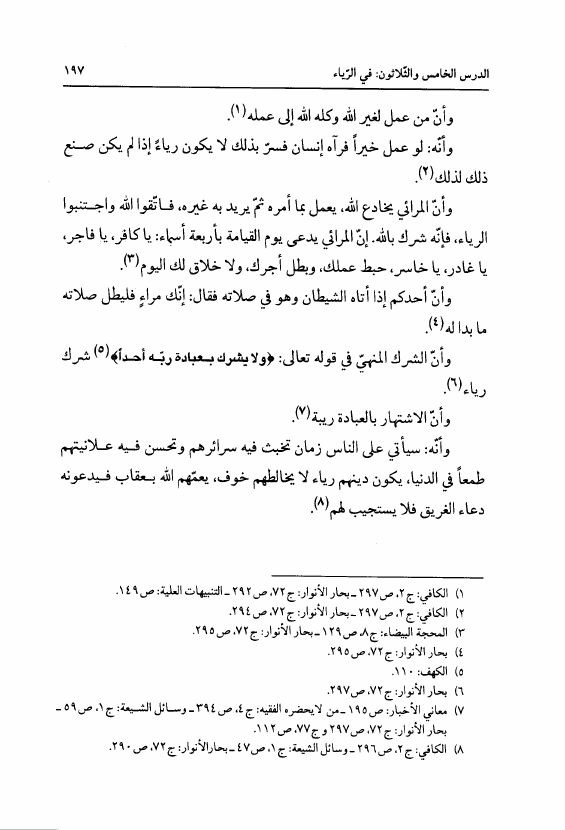 الدرس الخامس والثّلاثون: في الرّياء ١٩٧
وأنّ من عمل لغير الله وكله الله إلى عمله(١).
وأنّه: لو عمل خيراً فرآه إنسان فسرّ بذلك لا يكون رياءً إذا لم يكن صنع
ذلك لذلك(٢).
وأنّ المرائي يخادع الله، يعمل بما أمره ثمّ يريد به غيره، فاتّقوا الله واجتنبوا
الرياء، فإنّه شرك بالله. إنّ المرائي يدعى يوم القيامة بأربعة أسماء: يا كافر، يا فاجر،
يا غادر، يا خاسر، حبط عملك، وبطل أجرك، ولا خلاق لك اليوم(٣).
وأنّ أحدكم إذا أتاه الشيطان وهو في صلاته فقال: إنّك مراءٍ فليطل صلاته
ما بدا له(٤).
وأنّ الشرك المنهيّ في قوله تعالى: ﴿ولا يشرك بعبادة ربّه أحداً﴾(٥) شرك
رياء(٦).
وأنّ الاشتهار بالعبادة ريبة(٧).
وأنّه: سيأتي على الناس زمان تخبث فيه سرائرهم وتحسن فيه علانيتهم
طمعاً في الدنيا، يكون دينهم رياء لا يخالطهم خوف، يعمّهم الله بعقاب فيدعونه
دعاء الغريق فلا يستجيب لهم(٨).
١) الكافي: ج٢، ص٢٩٧ ـ بحار الأنوار: ج٧٢، ص٢٩٢ ـ التنبيهات العلية: ص١٤٩.
٢) الكافي: ج٢، ص٢٩٧ ـ بحار الأنوار: ج٧٢، ص٢٩٤.
٣) المحجة البيضاء: ج٨، ص١٢٩ ـ بحار الأنوار: ج٧٢، ص٢٩٥.
٤) بحار الأنوار: ج٧٢، ص٢٩٥.
٥) الكهف: ١١٠.
٦) بحار الأنوار: ج٧٢، ص٢٩٧.
٧) معاني الأخبار: ص١٩٥ ـ من لا يحضره الفقيه: ج٤، ص٣٩٤ ـ وسائل الشيعة: ج١، ص٥٩ ـ
بحار الأنوار: ج٧٢، ص٢٩٧ و ج٧٧، ص١١٢.
٨) الكافي: ج٢، ص٢٩٦ ـ وسائل الشيعة: ج١، ص٤٧ ـ بحار الأنوار: ج٧٢، ص٢٩٠.